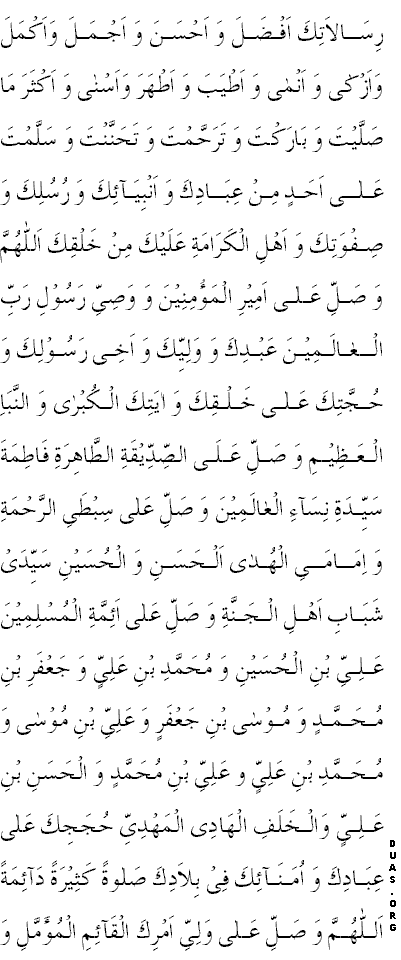 رِسَالاَتِكَ اَفْضَلَ وَ اَحْسَنَ وَ اَجْمَلَ وَاَكْمَلَ
وَاَزْكٰى وَ اَنْمٰى وَ اَطْيَبَ وَ اَطْهَرَ وَاَسْنٰى وَ اَكْثَرَ مَا
صَلَّيْتَ وَ بَارَكْتَ وَ تَرَحَّمْتَ وَ تَحَنَّنْتَ وَ سَلَّمْتَ
عَلٰى اَحَدٍ مِنْ عِبَادِكَ وَ اَنْبِيَآئِكَ وَ رُسُلِكَ وَ
صِفْوَتِكَ وَ اَهْلِ الْكَرَامَةِ عَلَيْكَ مِنْ خَلْقِكَ اَللّٰهُمَّ
وَ صَلِّ عَلٰى اَمِيْرِ الْمَؤُمِنِيْنَ وَ وَصِيِّ رَسُوْلِ رَبِّ
الْعٰالَمِيْنَ عَبْدِكَ وَ وَلِيِّكَ وَ اَخِى رَسُوْلِكَ وَ
حُجَّتِكَ عَلٰى خَلْقِكَ وَ اٰيَتِكَ الْكُبْرٰى وَ النَّبَاِ
الْعَظِيْمِ وَ صَلِّ عَلَى الصِّدِّيْقَةِ الطَّاهِرَةِ فَاطِمَةَ
سَيِّدَةِ نِسَآءِ الْعٰالَمِيْنَ وَ صَلِّ عَلٰى سِبْطَيِ الرَّحْمَةِ
وَ اِمَامَىِ الْهُدٰى اَلْحَسَنِ وَ الْحُسَيْنِ سَيِّدَىْ
شَبَابِ اَهْلِ الْجَنَّةِ وَ صَلِّ عَلٰى اَئِمَّةِ الْمُسْلِمِيْنَ
عَلِيِّ بْنِ الْحُسَيْنِ وَ مُحَمَّدِ بْنِ عَلِيٍّ وَ جَعْفَرِ بْنِ
مُحَمَّدٍ وَ مُوْسٰى بْنِ جَعْفَرٍ وَ عَلِيِّ بْنِ مُوْسٰى وَ
مُحَمَّدِ بْنِ عَلِيٍّ و عَلِيِّ بْنِ مُحَمَّدٍ وَ الْحَسَنِ بْنِ
عَلِيٍّ وَالْخَلَفِ الْهَادِى الْمَهْدِيِّ حُجَجِكَ عَلٰى
عِبَادِكَ وَ اُمَنَآئِكَ فِىْ بِلاَدِكَ صَلوةً كَثِيْرَةً دَآئِمَةً
اَللّٰهُمَّ وَ صَلِّ عَلٰى وَلِيِّ اَمْرِكَ الْقَآئِمِ الْمُؤَمَّلِ وَ
DUAS.ORG